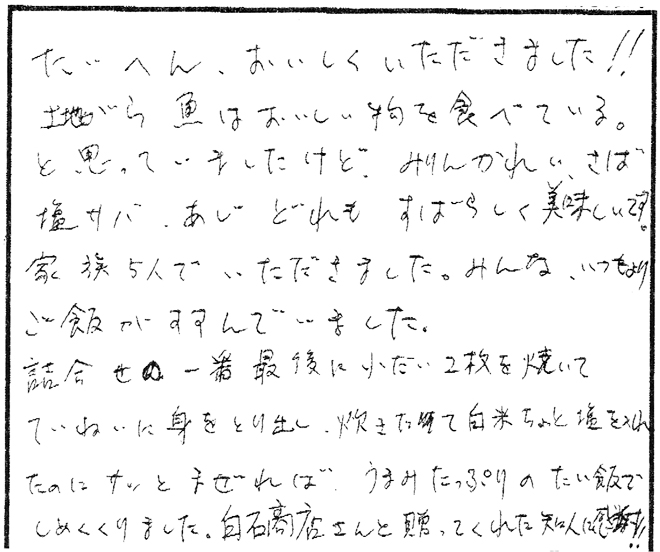 たいへん、おいしくいただきました!!
土地がら魚はおいしい物を食べている。
と思っていましたけど、みりんかれい、さば
塩サバ、あじ どれも すばらしく美味しいです。
家族5人で いただきました。みんな、いつもより
ご飯がすすんでいました。
詰合せの一番最後に小だい2枚を焼いて
ていねいに身をとり出し、炊きたて白米ちょと塩を入れ
たのにサッとまぜれば、うまみたっぷりのたい飯で
しめくくりました。白石商店さんと贈ってくれた知人に感謝!!